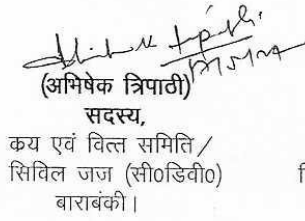 (अभिषेक त्रिपाठी)
सदस्य,
कय एवं वित्त समिति /
सिविल जज (सी०डिवी०)
बाराबंकी।